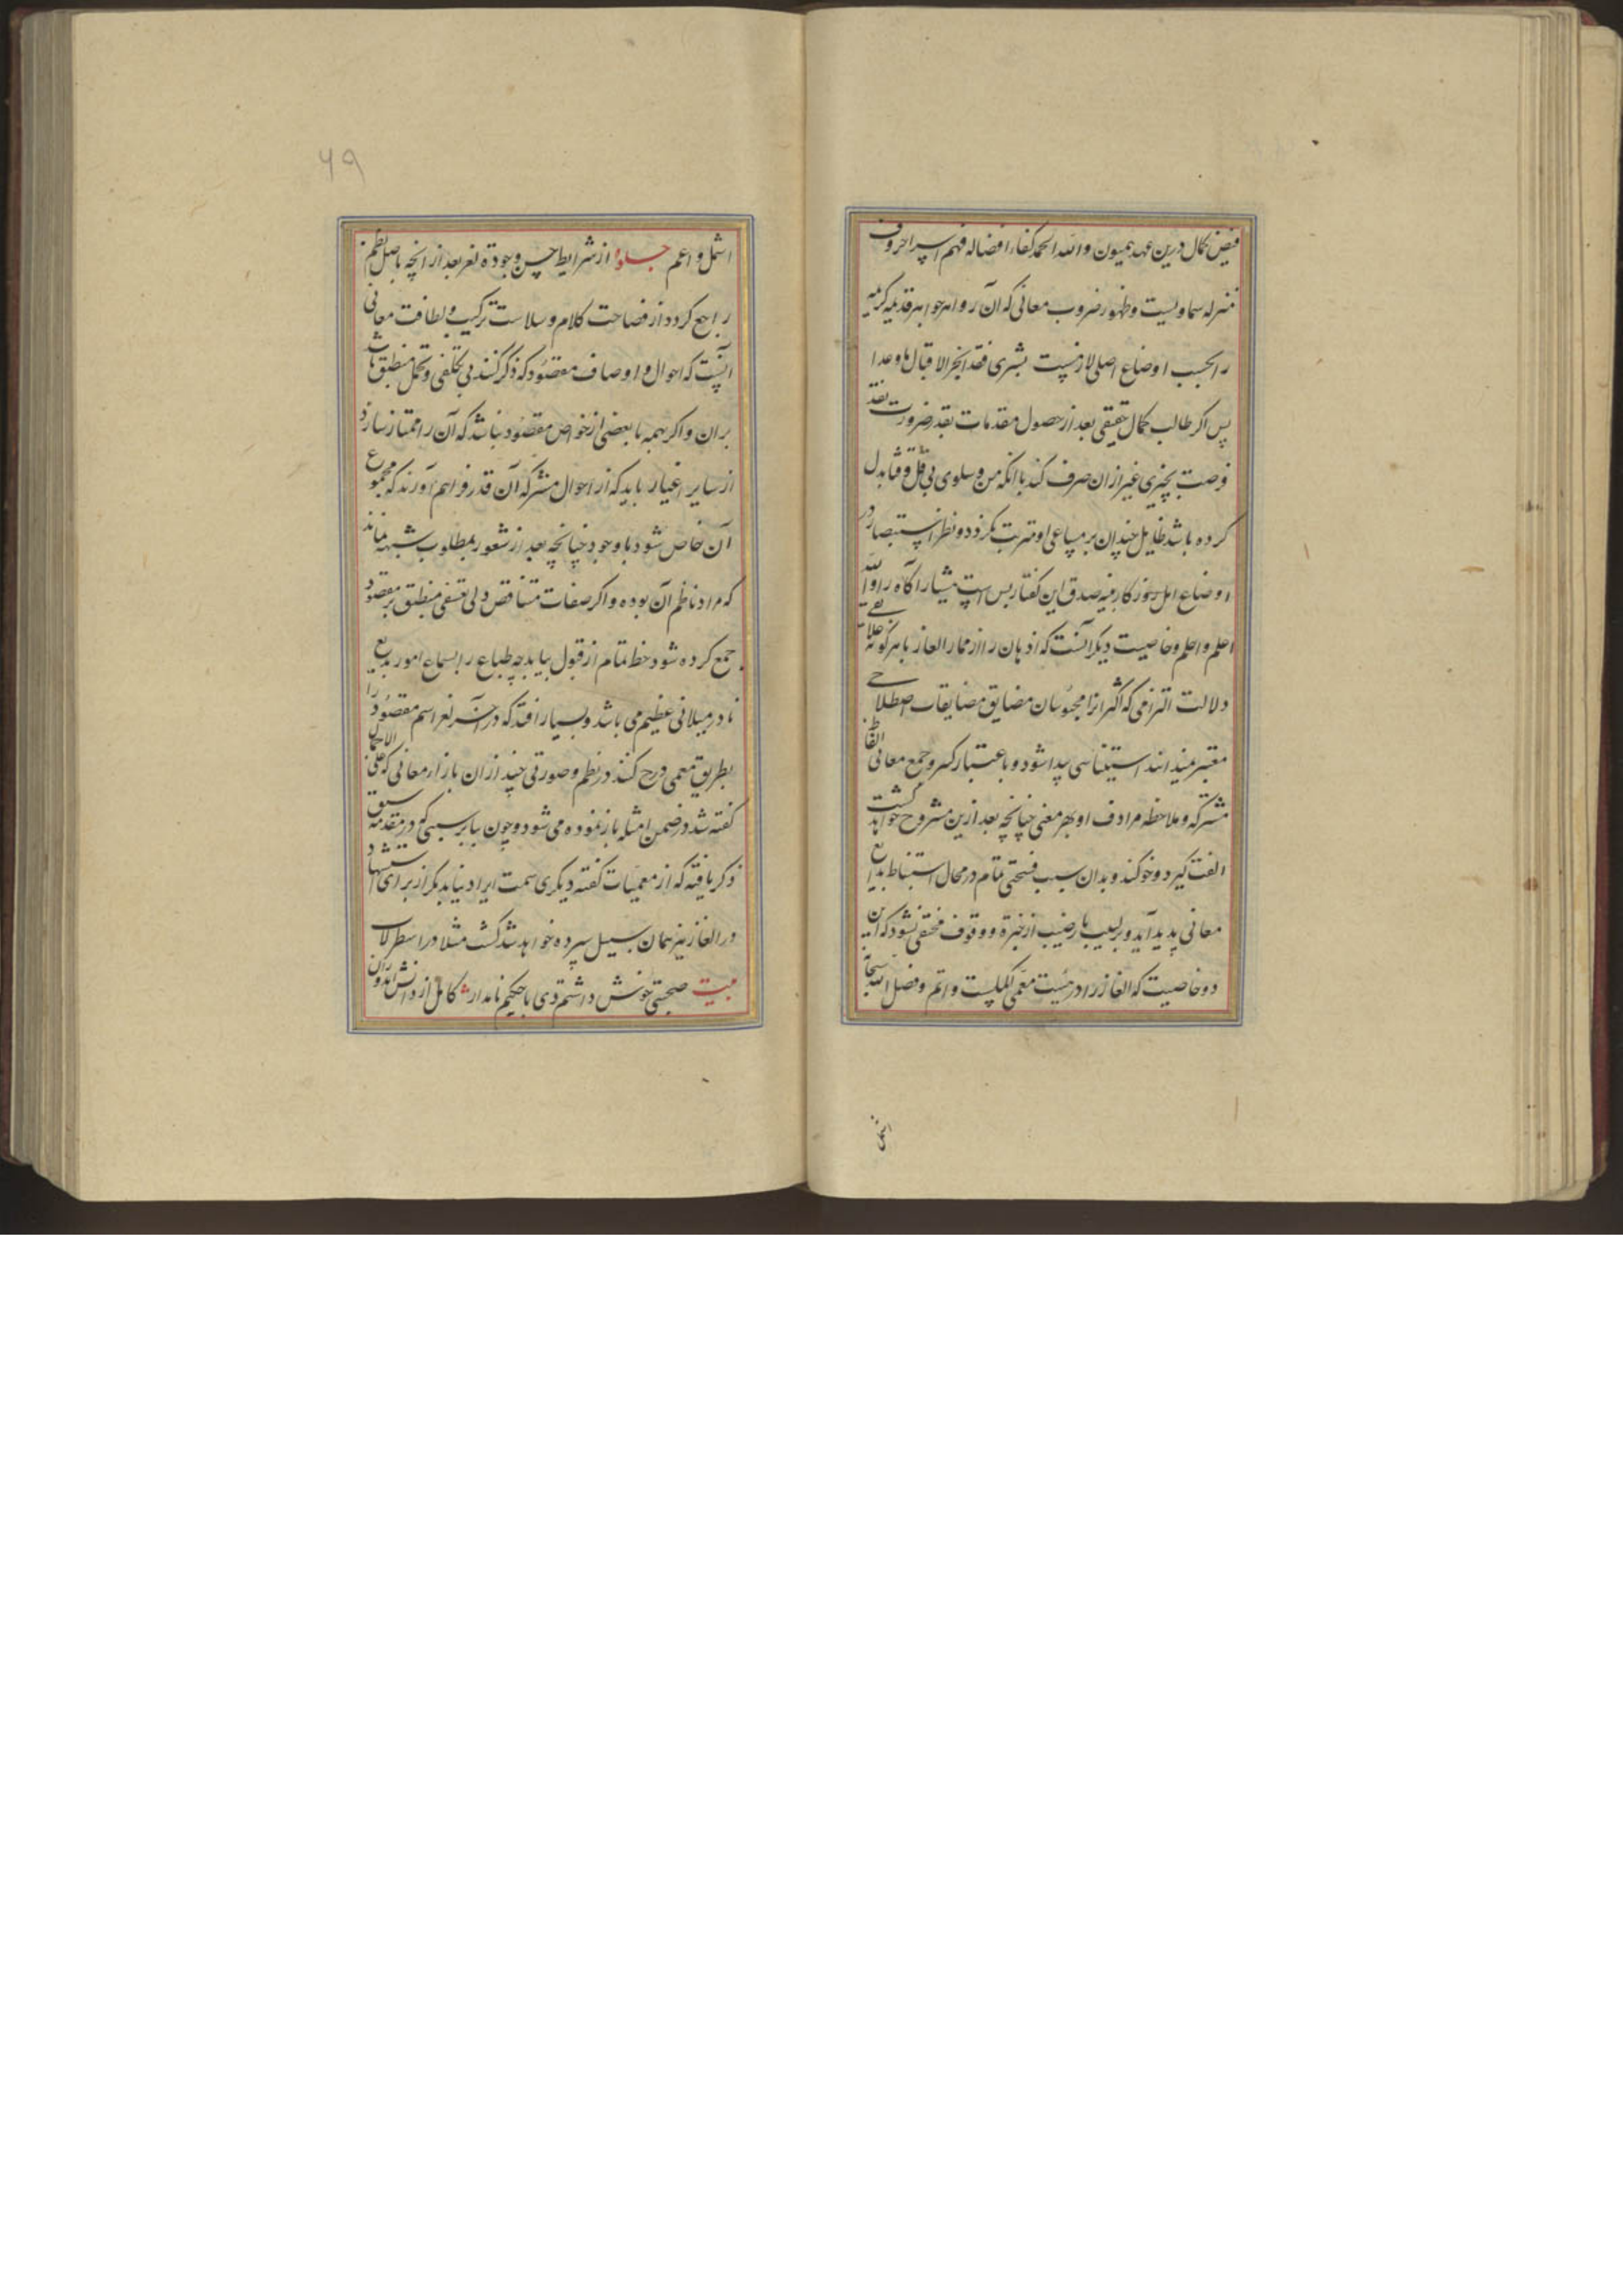 فیض کمال درین عهد همیون والله الحمد کفاء افضاله فهم اسرار حروف
منزله سماویست و ظهور ضروب معانی که آن زواهر جواهر قدیمه کریمه
را بحسب اوضاع اصلی لازمست بشری فقد انجز الاقبال ما وعدا
پس اگر طالب کمال حقیقی بعد از حصول مقدمات بقدر ضرورت نقد
فرصت بچیزی غیر از ان صرف کند با انکه من و سلوی بی بقل و قثا بدل
کرده باشد طایل چندان بر مساعی او مترتب نکردد و نظر استبصار در
اوضاع اهل روزکار بینه صدق این کفتار بس است هشیار آگاه را والله
اعلم واحلم وخاصیت دیکر آنست که اذهان را از ممار الغاز با هر کونه علاقه
دلالت التزامی که اکثر انرا محبوسان مضایق مضایقات اصطلاحی
معتبر میندانند استیناسی پیدا شود و باعتبار کسر و جمع معانی الفاظ
مشترکه و ملاحظه مرادف او بهر معنی چنانچه بعد ازین مشروح خواهد گشت
الفت کیرد و خو کند و بدان سبب فسحتی تمام در مجال استنباط بدایع
معانی پدید آید و بر لبیب با نصیب از خبرة و وقوف مختفی نشود که این
دو خاصیت که الغاز را در هست معمی را کملست و اتم و فضل الله سبحانه
اشمل و اعم
۶۹
اشمل و اعم جلوه از شرایط حسن و جودة لغز بعد از انچه باصل نظم
راجع کردد از فصاحت کلام و سلاست ترکیب و لطافت معانی
آنست که احوال و اوصاف مقصود که ذکر کنند بی تکلفی و تمحل منطبق باشد
بران و اکر همه یا بعضی از خواص مقصود نباشد که آن را ممتاز سازد
از سایر اغیار باید که از احوال مشترکه آن قدر فراهم آورند که مجموع
آن خاص شود باو جود چنانچه بعد از شعور بمطلوب شبهه نماند
که مراد ناظم آن بوده و اکر صفات متناقض ولی متسق منطبق بر مقصود
جمع کرده شود حظ تمام از قبول بیابد چه طباع را بسماع امور بدیع
نادر میلانی عظیم می باشد و بسیار افتد که در آخر لغز اسم مقصود را
بطریق معمی درج کنند در نظم و صورتی چند از ان باز از معانی که علی الاجمال
کفته شد در ضمن امثله باز نموده می شود و چون بنا بر سببی که در مقدمه سبق
ذکر یافته که از معمیات کفته دیکری سمت ایراد نیابد مکر از برای استشهاد
در الغاز نیز همان سبیل سپرده خواهد شد کشت مثلا در اسطرلاب
بیت صحبتی خوش داشتم دی با حکیم نامدار کامل از دانش